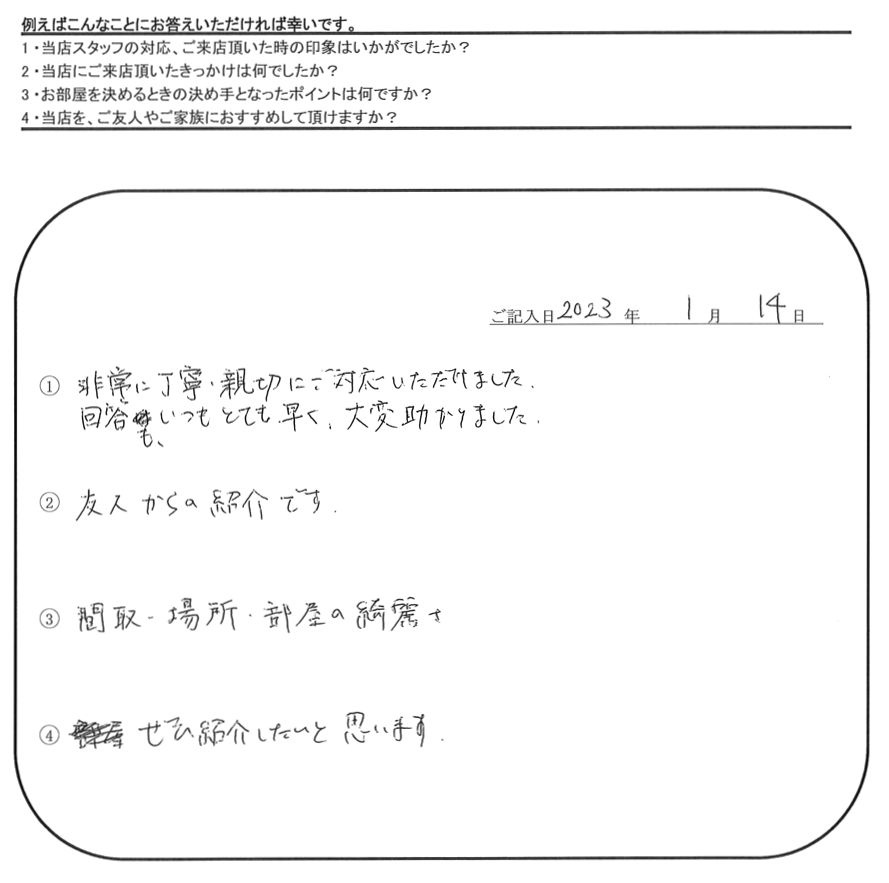 例えばこんなことにお答えいただければ幸いです。
1・当店スタッフの対応、ご来店頂いた時の印象はいかがでしたか？
2・当店にご来店頂いたきっかけは何でしたか？
3・お部屋を決めるときの決め手となったポイントは何ですか？
4・当店を、ご友人やご家族におすすめして頂けますか？
ご記入日2023年 1月 14日
① 非常に丁寧・親切にご対応いただけました.
回答 いつもとても早く、大変助かりました.
も、
② 友人からの紹介です.
③ 間取・場所・部屋の綺麗さ
④ ぜひ紹介したいと思います.